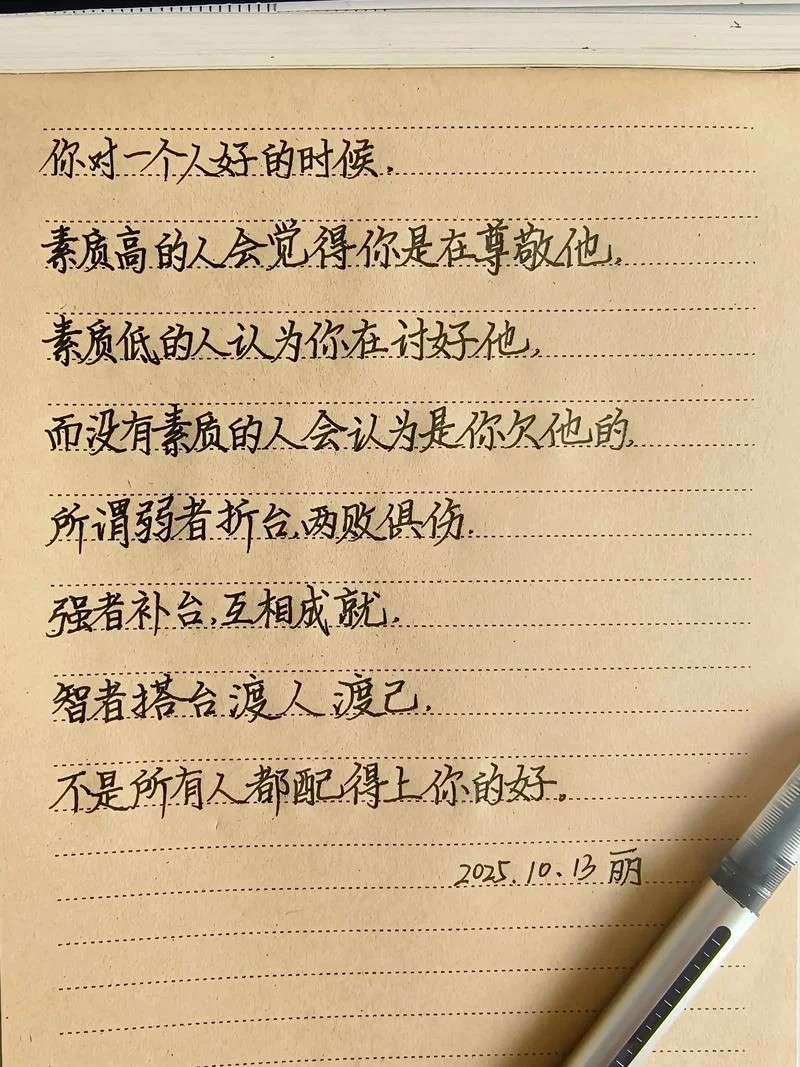 你对一个人好的时候,
素质高的人会觉得你是在尊敬他,
素质低的人认为你在讨好他,
而没有素质的人会认为是你欠他的,
所谓弱者折台,两败俱伤.
强者补台,互相成就,
智者搭台渡人渡己,
不是所有人都配得上你的好。
2025.10.13 丽